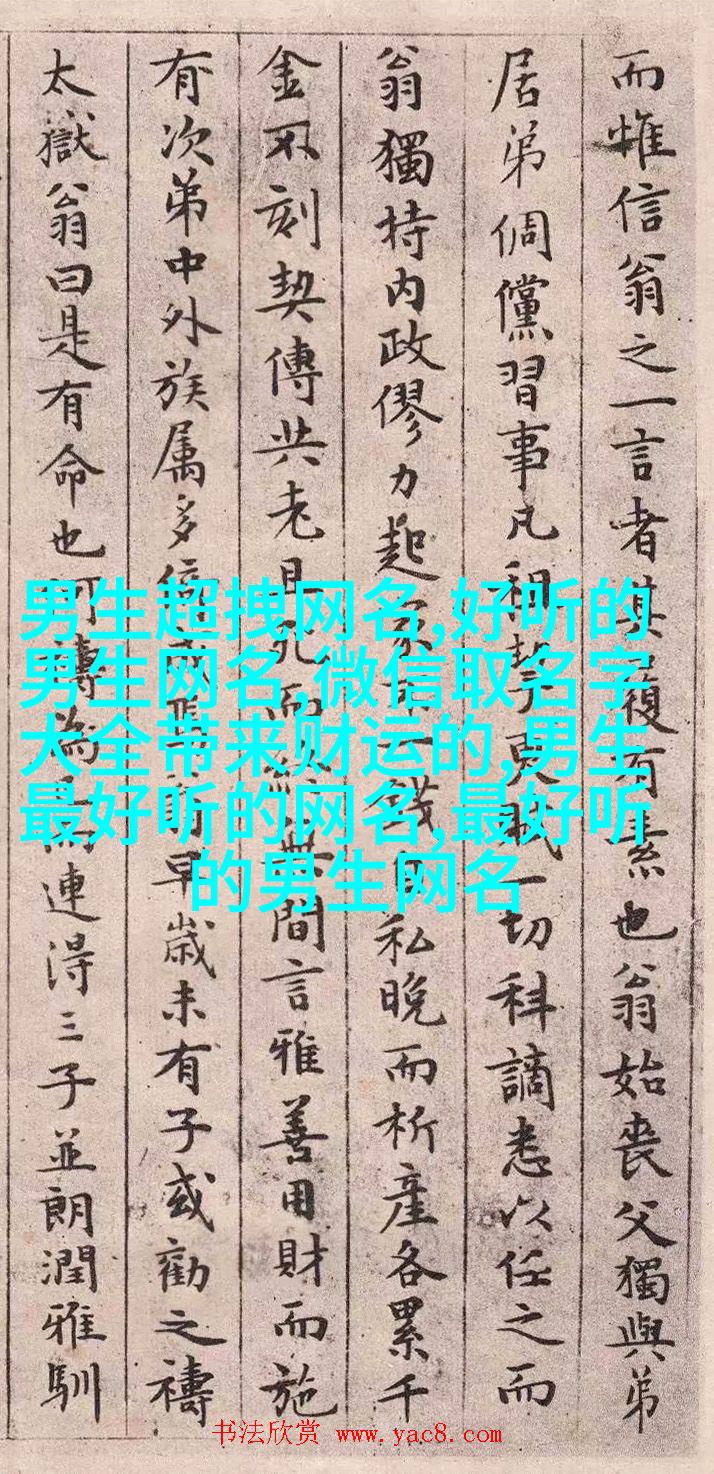 而惟信翁之一言者其履有素也翁始喪父獨與弟
居弟倜儻習事凡租更賦一切科謫悉以任之而
翁獨持内政僇力起家一錢私晚而析產各累千
金不刻契傳共老且死而無間言雅善用財而施
有次弟中外族属多早歲未有子或勸之禱
太嶽翁曰是有命也何禱為而連得三子並朗潤雅馴
男生超拽网名,好听的
男生网名,微信取名字
大全带来财运的,男生
最好听的网名,最好听
的男生网名
书法欣赏 www.yac8.com